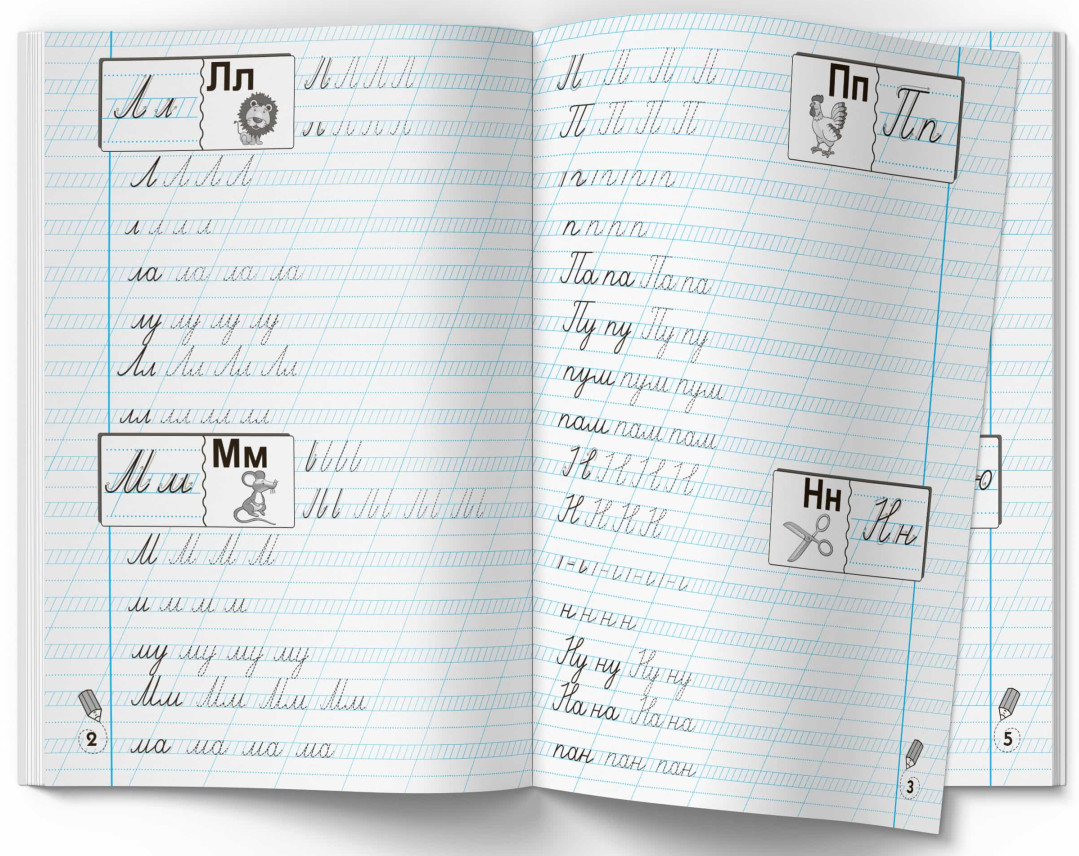 Лл Лл Л Л Л Л
л л л л л
Л Л Л Л
л л л л
ла ла ла ла
лу лу лу лу
Лл Лл Лл Лл
лл лл лл лл
Мм Мм
М М М М
м м м м
му му му му
Мм Мм Мм Мм
ма ма ма ма
2
Пп Пп
П П П П
п п п п
Па па Па па
Пу пу Пу пу
пум пум пум
пам пам пам
Нн Нн
Н Н Н Н
н н н н
Ну ну Ну ну
На на На на
пан пан пан
3
ю
5